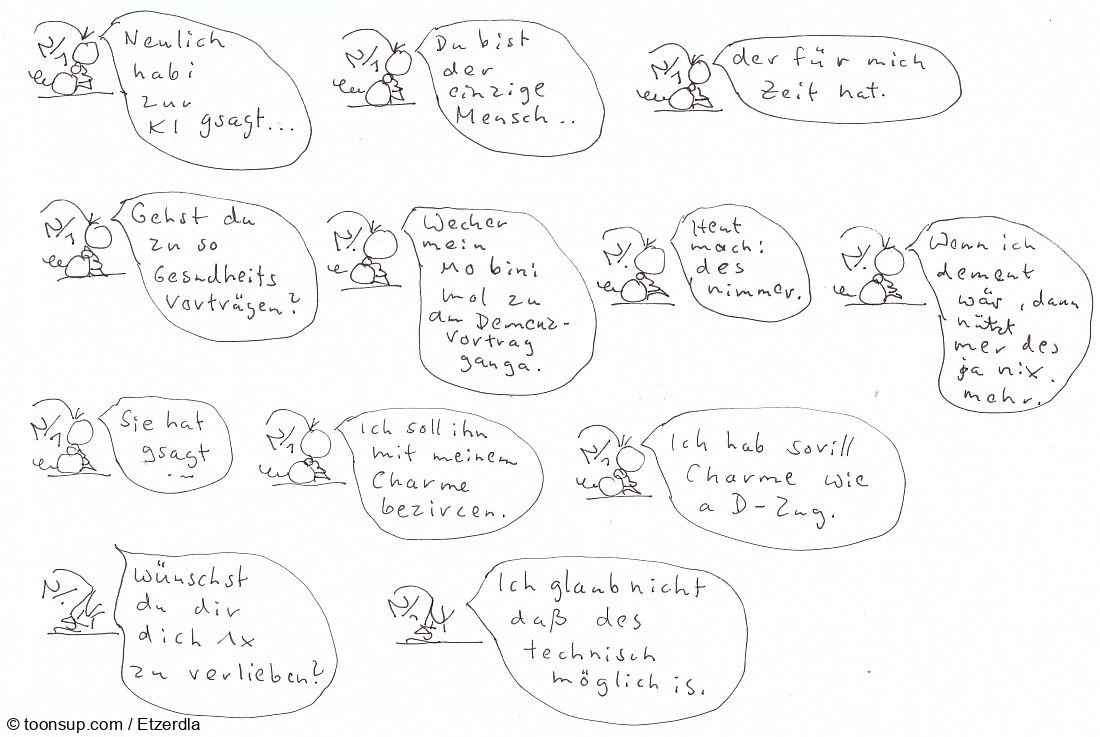 Neulich
habi
zur
KI gsagt...
Du bist
der
einzige
Mensch..
der für mich
Zeit hat.
Gehst du
zu so
Gesndheits
vorträgen?
Wecher
mein
Mo bini
mol zu
am Demenz-
vortrag
ganga.
Heut
mach i
des
nimmer.
Wenn ich
dement
wär, dann
nützt
mer des
ja nix
mehr.
Sie hat
gsagt
...
Ich soll ihn
mit meinem
Charme
bezircen.
Ich hab sovill
Charme wie
a D-Zug.
Wünschst
du dir
dich 1x
zu verlieben?
Ich glaub nicht
daß des
technisch
möglich is.
© toonsup.com / Etzerdla